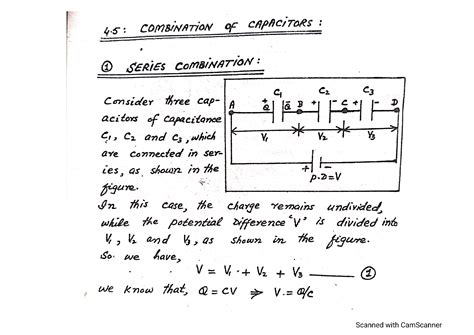 4.5: COMBINATION OF CAPACITORS:
① SERIES COMBINATION:
Consider three cap-
acitors of capacitance
C₁, C₂ and C₃, which
are connected in ser-
ies, as shown in the
figure.
C₁ C₂ C₃
A + Q - Q B + - C + - D
V₁ V₂ V₃
+ -
P.D=V
In this case, the charge remains undivided,
while the potential Difference "V" is divided into
V₁, V₂ and V₃, as shown in the figure.
So we have,
V = V₁ + V₂ + V₃ ——— ①
We know that, Q = CV ⇒ V = Q/C
Scanned with CamScanner